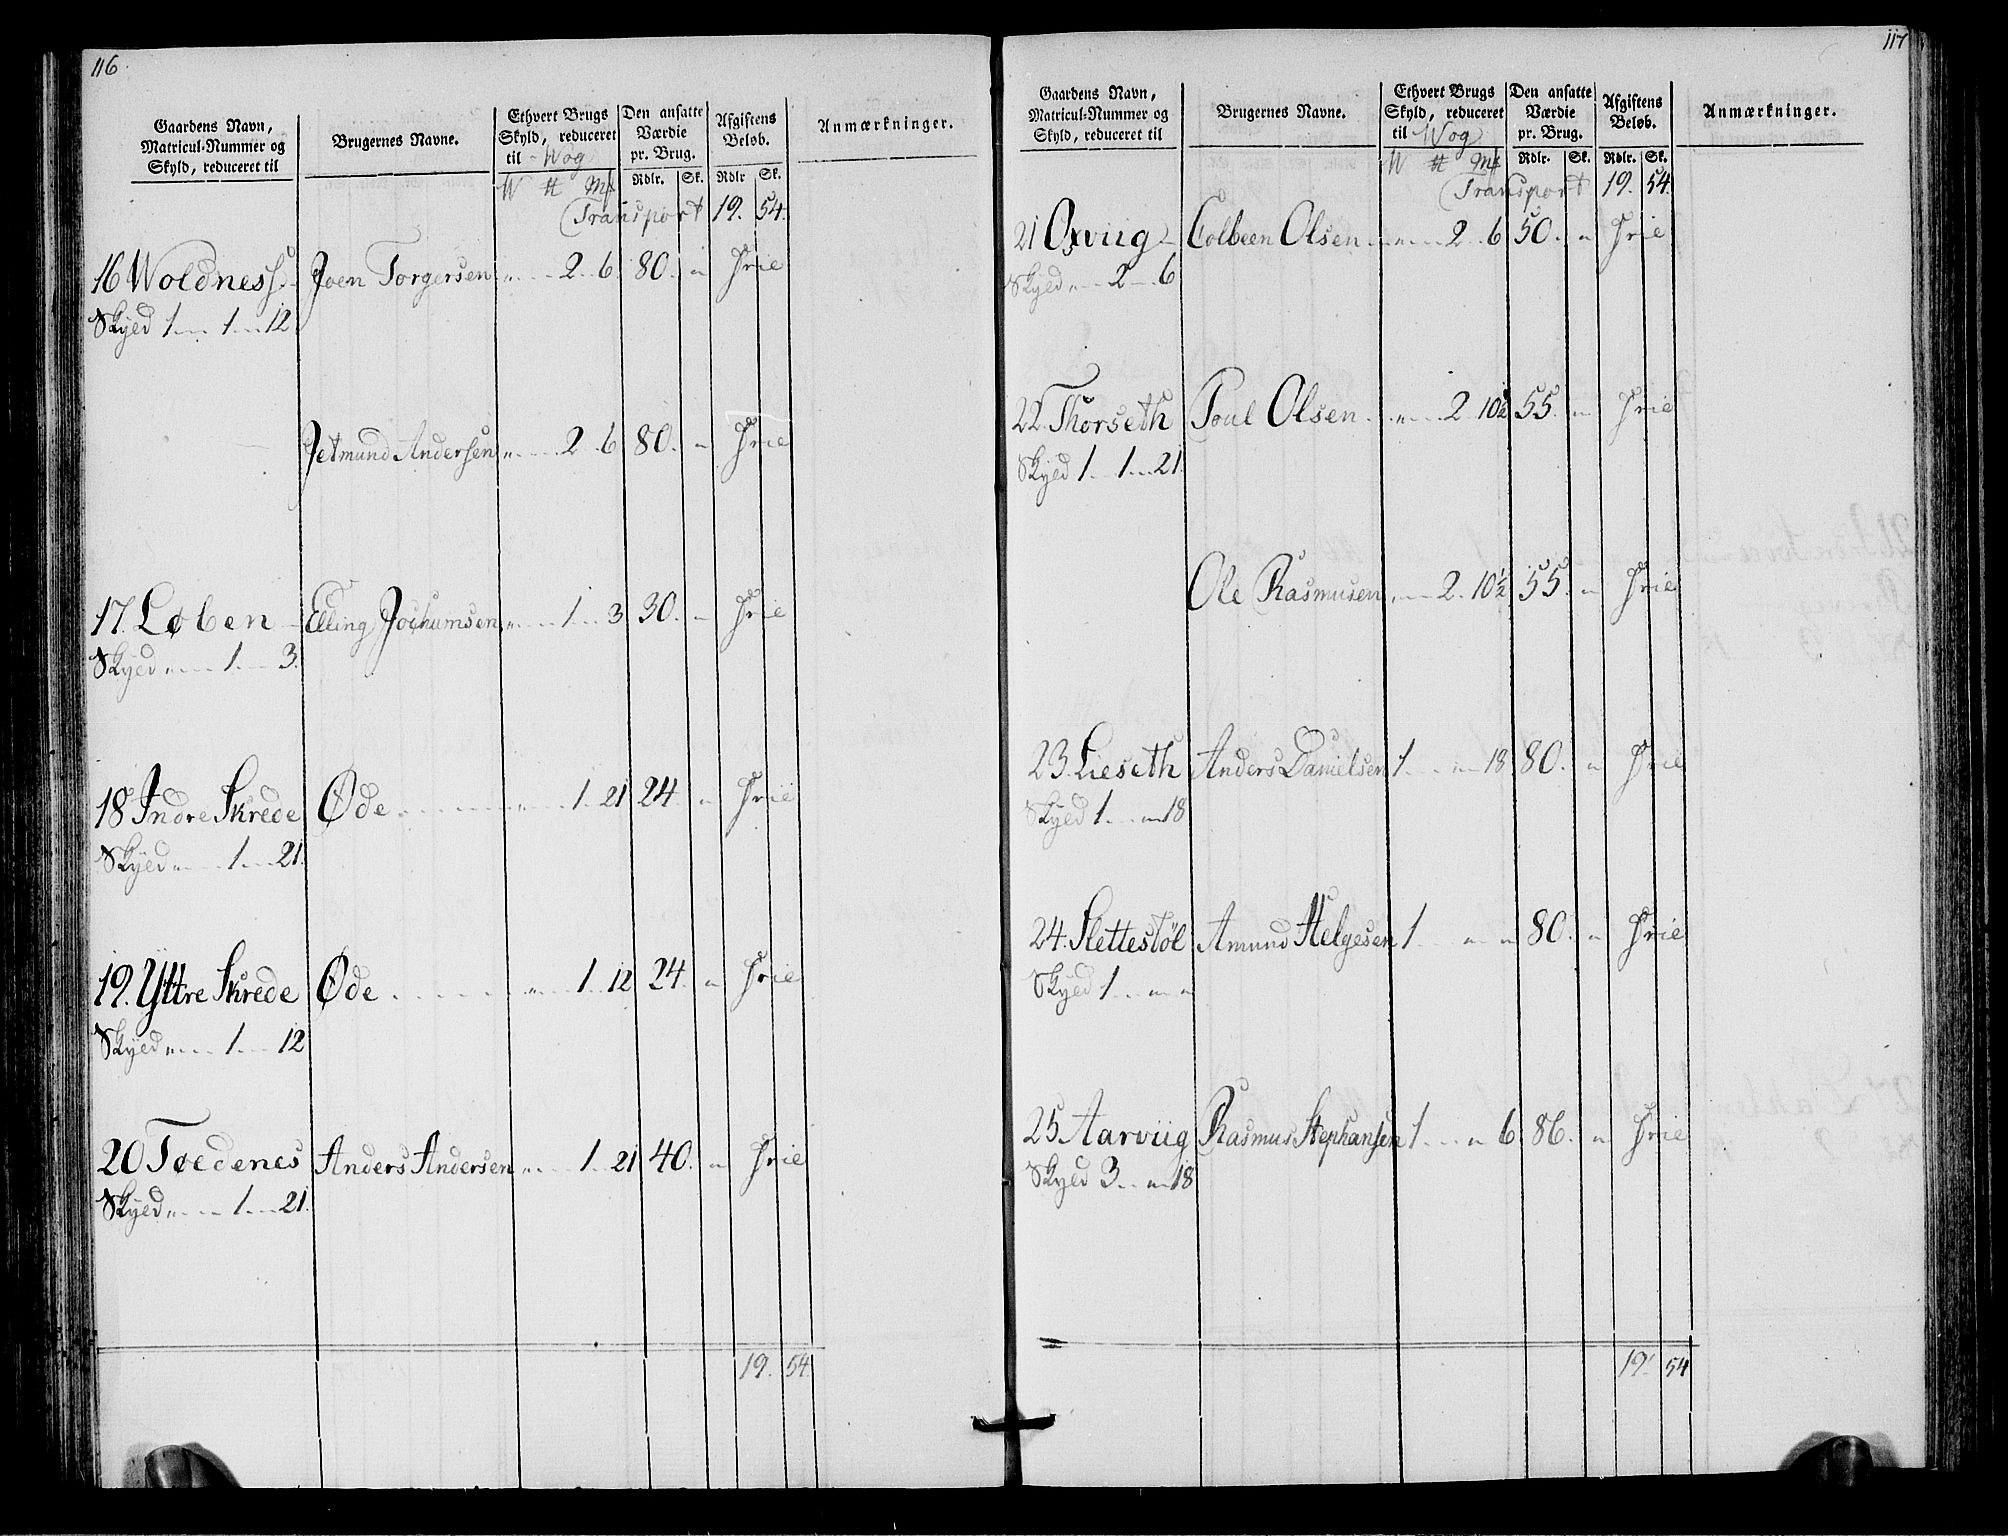 116
Gaardens Navn, Matricul-Nummer og Skyld, reduceret til
Brugernes Navne.
Ethvert Brugs Skyld, reduceret til Wog
Den ansatte Værdie pr. Brug.
Afgiftens Beløb.
Anmærkninger.
W ₶ Mk Rdlr. Sk. Rdlr Sk.
Transport 19. 54.
16 Woldness. Joen Torgersen " 2 6 80. " Frie
Skyld 1 1 12.
Jetmund Andersen " 2 6 80. " Frie
17. Løben Elling Jochumsen " 1 3 30. " Frie
Skyld " 1 3.
18 Indre Skrede Øde " 1 21 24. " Frie
Skyld " 1 21.
19. Yttre Skrede Øde " 1 12 24. " Frie
Skyld " 1 12
20 Toedenes Anders Andersen " 1 21 40. " Frie
Skyld " 1 21.
19. 54
117
Gaardens Navn, Matricul-Nummer og Skyld, reduceret til
Brugernes Navne.
Ethvert Brugs Skyld, reduceret til Wog
Den ansatte Værdie pr. Brug.
Afgiftens Beløb.
Anmærkninger.
W ₶ Mk Rdlr. Sk. Rdlr. Sk.
Transport 19. 54.
21 Oxviig Colbeen Olsen " 2 6 50. " Frie
Skyld " 2 6
22. Thorseth Poul Olsen " 2 10½ 55. " Frie
Skyld 1 1 21.
Ole Rasmusen " 2 10½ 55. " Frie
23. Lieseth Anders Danielsen 1 " 18 80. " Frie
Skyld 1 " 18
24. Slettestøl Amund Helgesen 1 " " 80. " Frie
Skyld 1 " "
25 Aarviig Rasmus Stephansen 1 " 6 86. " Frie
Skyld 3 " 18
19. 54